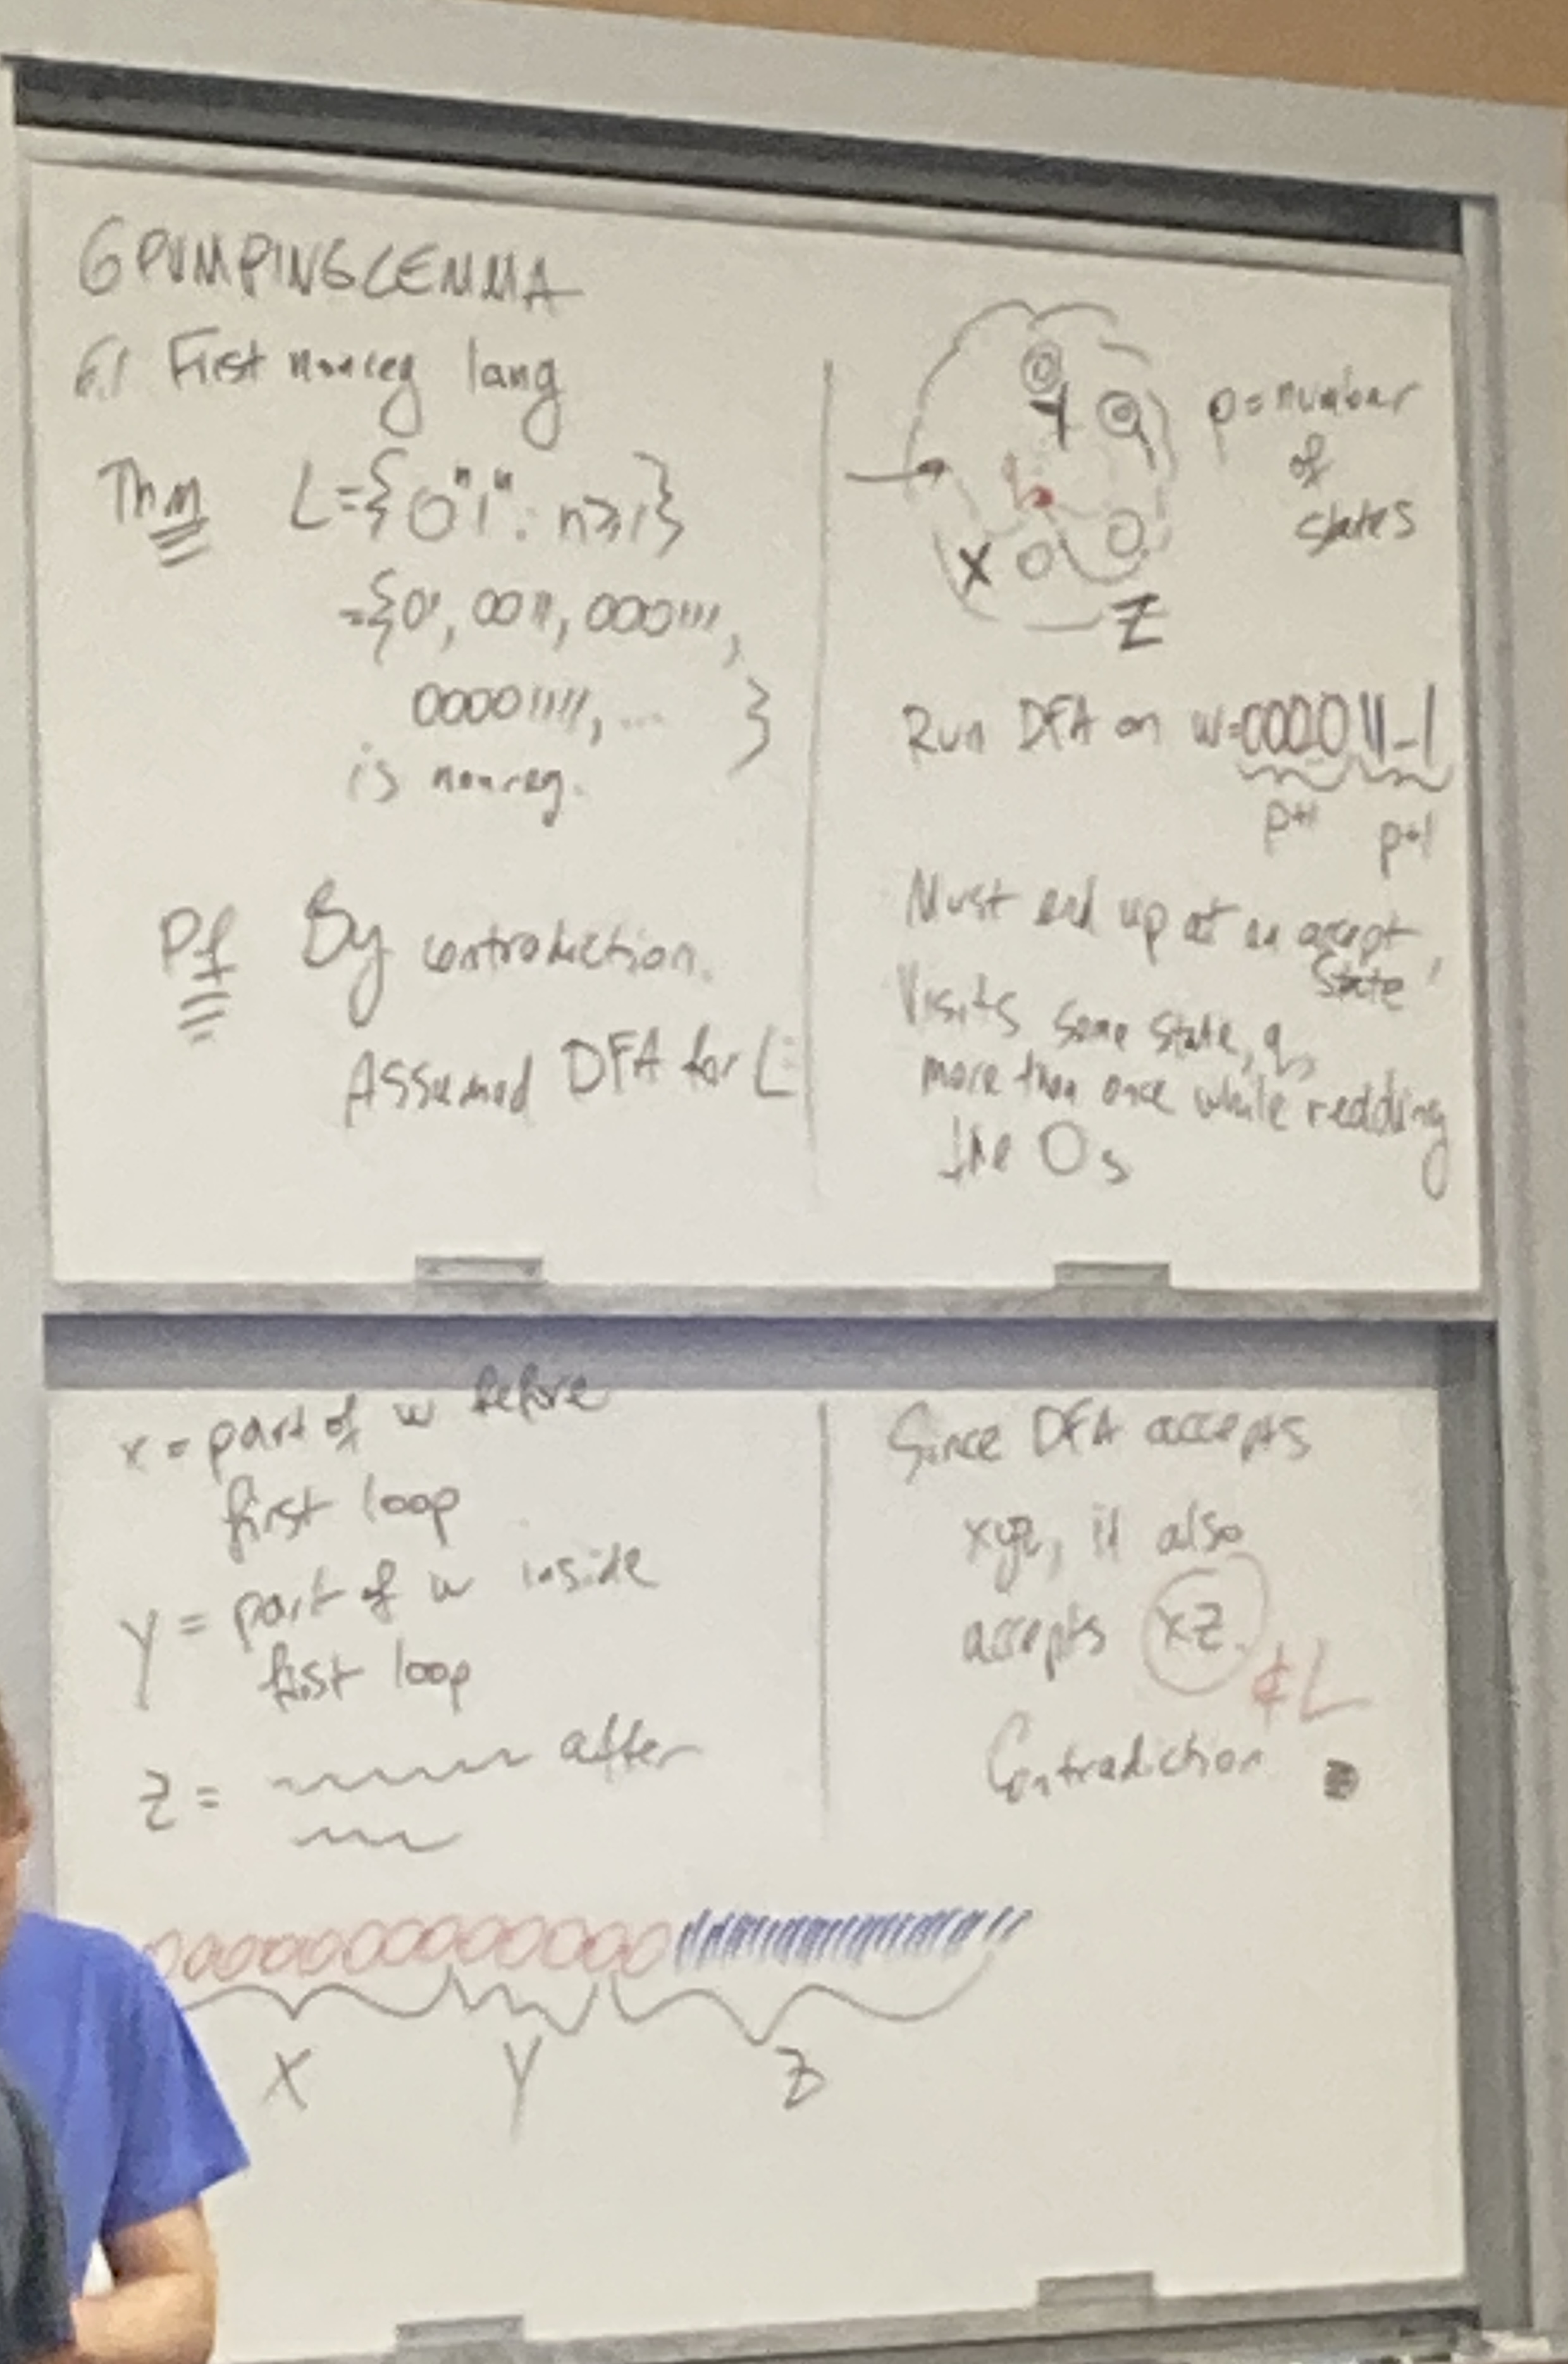 6 PUMPING LEMMA
6.1 First nonreg lang
Thm L={0ⁿ1ⁿ: n≥1}
={01, 0011, 000111,
00001111, ... }
is nonreg.
Pf By contradiction.
Assumed DFA for L:
Y
q
X
Z
p=number
of
states
Run DFA on w=0000 11-1
p+1 p+1
Must end up at an accept
state,
Visits some state, q,
more than once while reading
the 0s
x = part of w before
first loop
y = part of w inside
first loop
z = after
Since DFA accepts
xyz, it also
accepts xz. ∉L
Contradiction
00000000000000011111111111111111
X Y Z